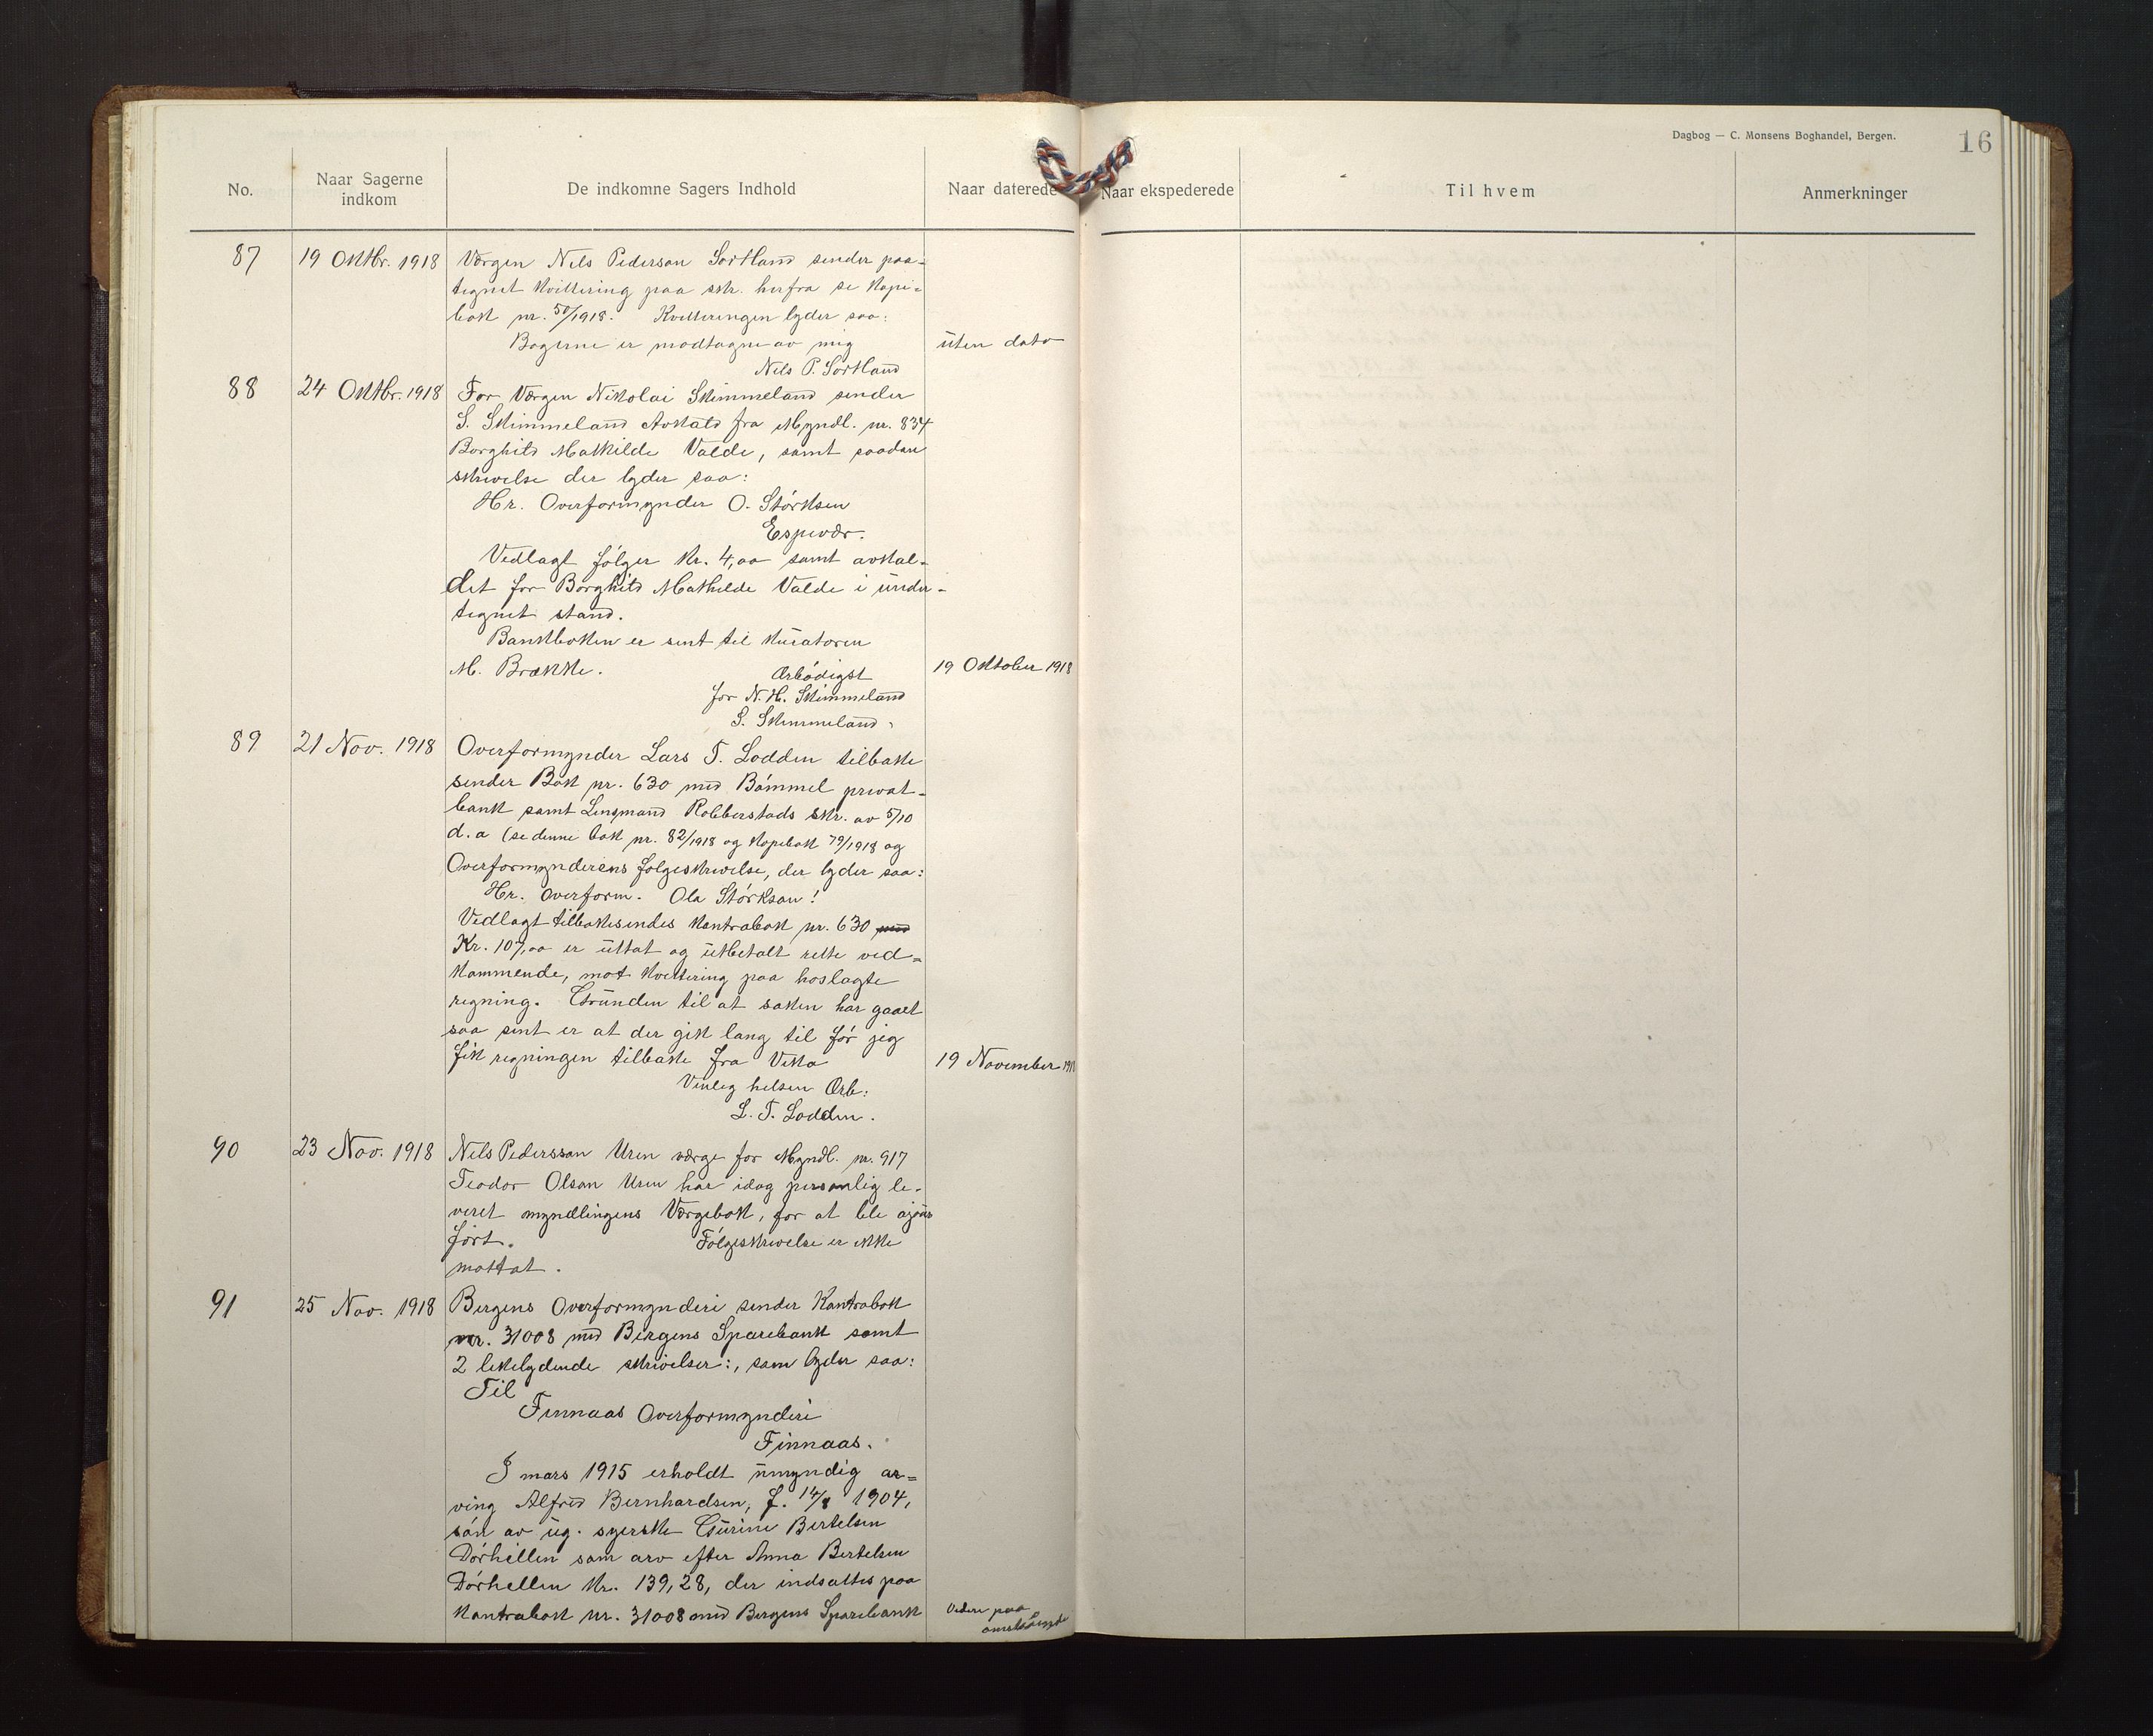 Dagbog — C. Monsens Boghandel, Bergen.
16
No.
Naar Sagerne indkom
De indkomne Sagers Indhold
Naar daterede
Naar ekspederede
Til hvem
Anmerkninger
87 19 Oktbr. 1918 Værgen Nels Pederson Sortland sender paa-
tegnet kvittering paa skr. herfra se Kopi-
bok nr. 50/1918. Kvitteringen lyder saa:
Bøgerne er modtagne av mig uten dato
Nels P. Sortland
88 24 Oktbr. 1918 For Værgen Nikolai Skimmeland sender
S. Skimmeland Avkald fra Myndl. nr. 834
Borghild Mathilde Valde, samt saadan
skrivelse der lyder saa:
Hr. Overformynder O. Størksen
Espevær.
Vedlagt følger kr. 4,00 samt avkal-
det for Borghild Mathilde Valde i under-
tegnet stand.
Bankboken er sent til kuratoren
M. Brække. 19 Oktober 1918
Ærbødigst
for N. H. Skimmeland
S. Skimmeland.
89 21 Nov. 1918 Overformynder Lars T. Lodden tilbake
sender Bok nr. 630 med Bømmel privat-
bank samt Lensmand Robberstads skr. av 5/10
d.a (se denne bok nr. 82/1918 og Kopibok 79/1918 og
Overformynderens følgeskrivelse, der lyder saa:
Hr. Overform. Ola Størkson!
Vedlagt tilbakesendes kontrabok nr. 630 med
Kr. 107,00 er uttat og utbetalt rette ved-
kommende, mot kvittering paa hoslagte
regning. Grunden til at saken har gaaet
saa sent er at der gik lang til før jeg
fik regningen tilbake fra Vika 19 November 1918
Venleg helsen Ærb:
L. T. Lodden.
90 23 Nov. 1918 Nels Pedersson Uren værge for Myndl. nr. 917
Teodor Olson Uren har idag personlig le-
veret myndlingens Værgebok, for at bli ajour
ført. Følgeskrivelse er ikke
mottat.
91 25 Nov. 1918 Bergens Overformynderi sender Kontrabok
nr. 31008 med Bergens Sparebank samt
2 likelydende skrivelser:, som lyder saa:
Til
Finnaas Overformynderi
Finnaas.
I mars 1915 erholdt umyndig ar-
ving Alfred Bernhardsen, f. 14/8 1904,
søn av ug. syerske Gurine Bertelsen
Dørhellen som arv efter Anna Bertelsen
Dørhellen kr. 139,28, der indsattes paa
kontrabok nr. 31008 med Bergens Sparebank
Videre paa